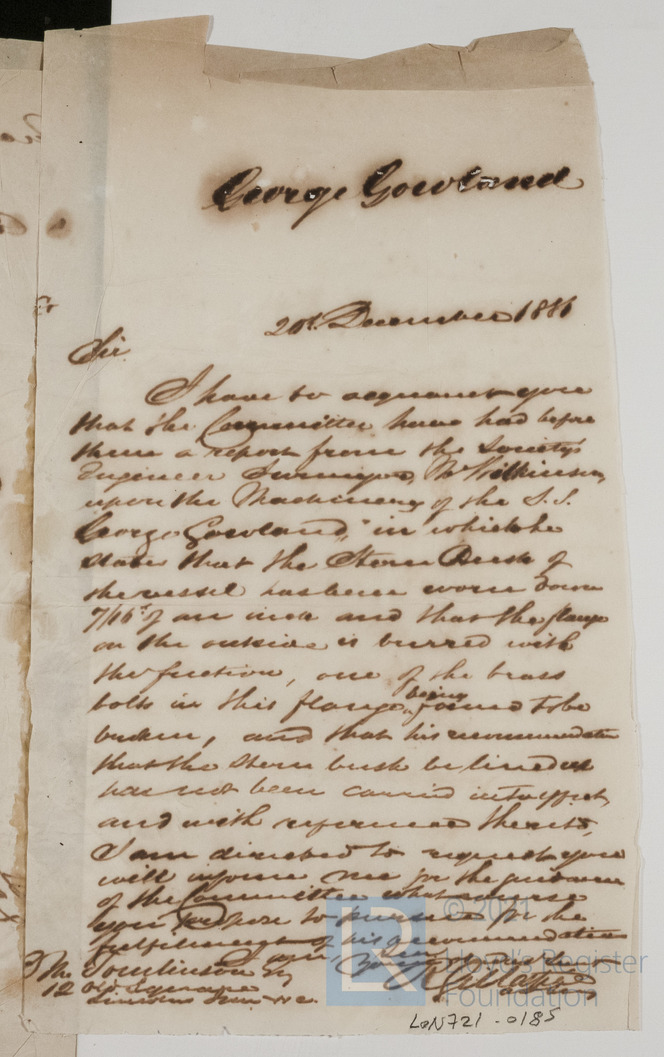 George Gowland
20th December 1886
Sir
I have to acquaint you
that the Committee have had before
them a report from the Society's
Engineer Surveyor, Mr Wilkinson
upon the Machinery of the S.S.
"George Gowland," in which he
states that the Stern Bush of
the vessel has been worn down
7/16ths of an inch and that the flange
on the outside is burred with
the friction, one of the brass
bolts in this flange being found to be
broken, and that his recommendation
that the stern bush be lined up
has not been carried into effect,
and with reference thereto,
I am directed to request you
will inform me for the guidance
of the Committee what course
you propose to pursue for the
fulfilment of his recommendation
I am, Your
Tomlinson Esq
12 Old Square
Lincolns Inn W.C.
© 2021
Lloyd's Register
Foundation
LON721-0185